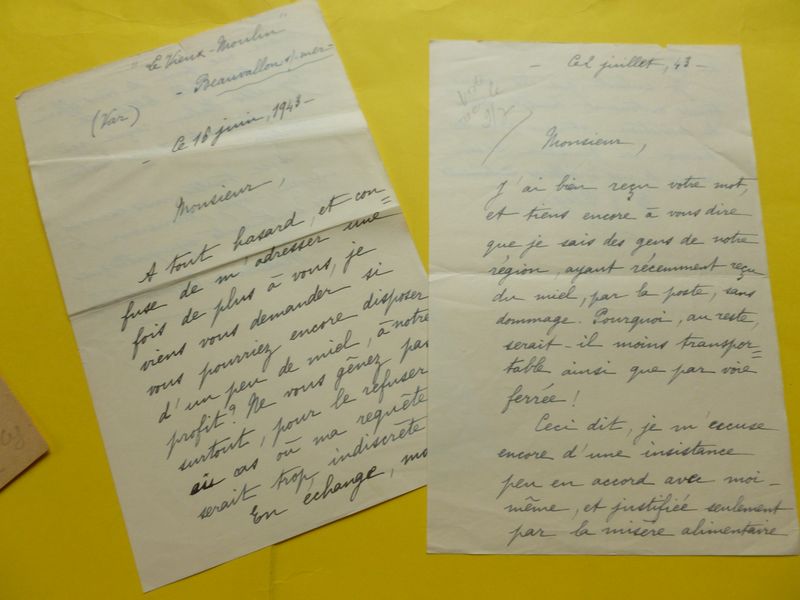 "Le Vieux-Moulin"
- Beauvallon s/-mer-
(Var)
- Ce 18 juin, 1943 -
Monsieur,
A tout hasard, et con
fuse de m'adresser une=
fois de plus à vous, je
viens vous demander si
vous pourriez encore disposer
d'un peu de miel, à notre
profit? Ne vous gênez pas
surtout, pour le refuser
au cas où ma requête
serait trop indiscrète
En échange, mo
- Ce 2 juillet, 43 -
le
9/7
Monsieur,
J'ai bien reçu votre mot,
et tiens encore à vous dire
que je sais des gens de notre
région, ayant récemment reçu
du miel, par la poste, sans
dommage. Pourquoi, au reste,
serait-il moins transpor=
table ainsi que par voie
ferrée!
Ceci dit, je m'excuse
encore d'une insistance
peu en accord avec moi-
même, et justifiée seulement
par la misère alimentaire